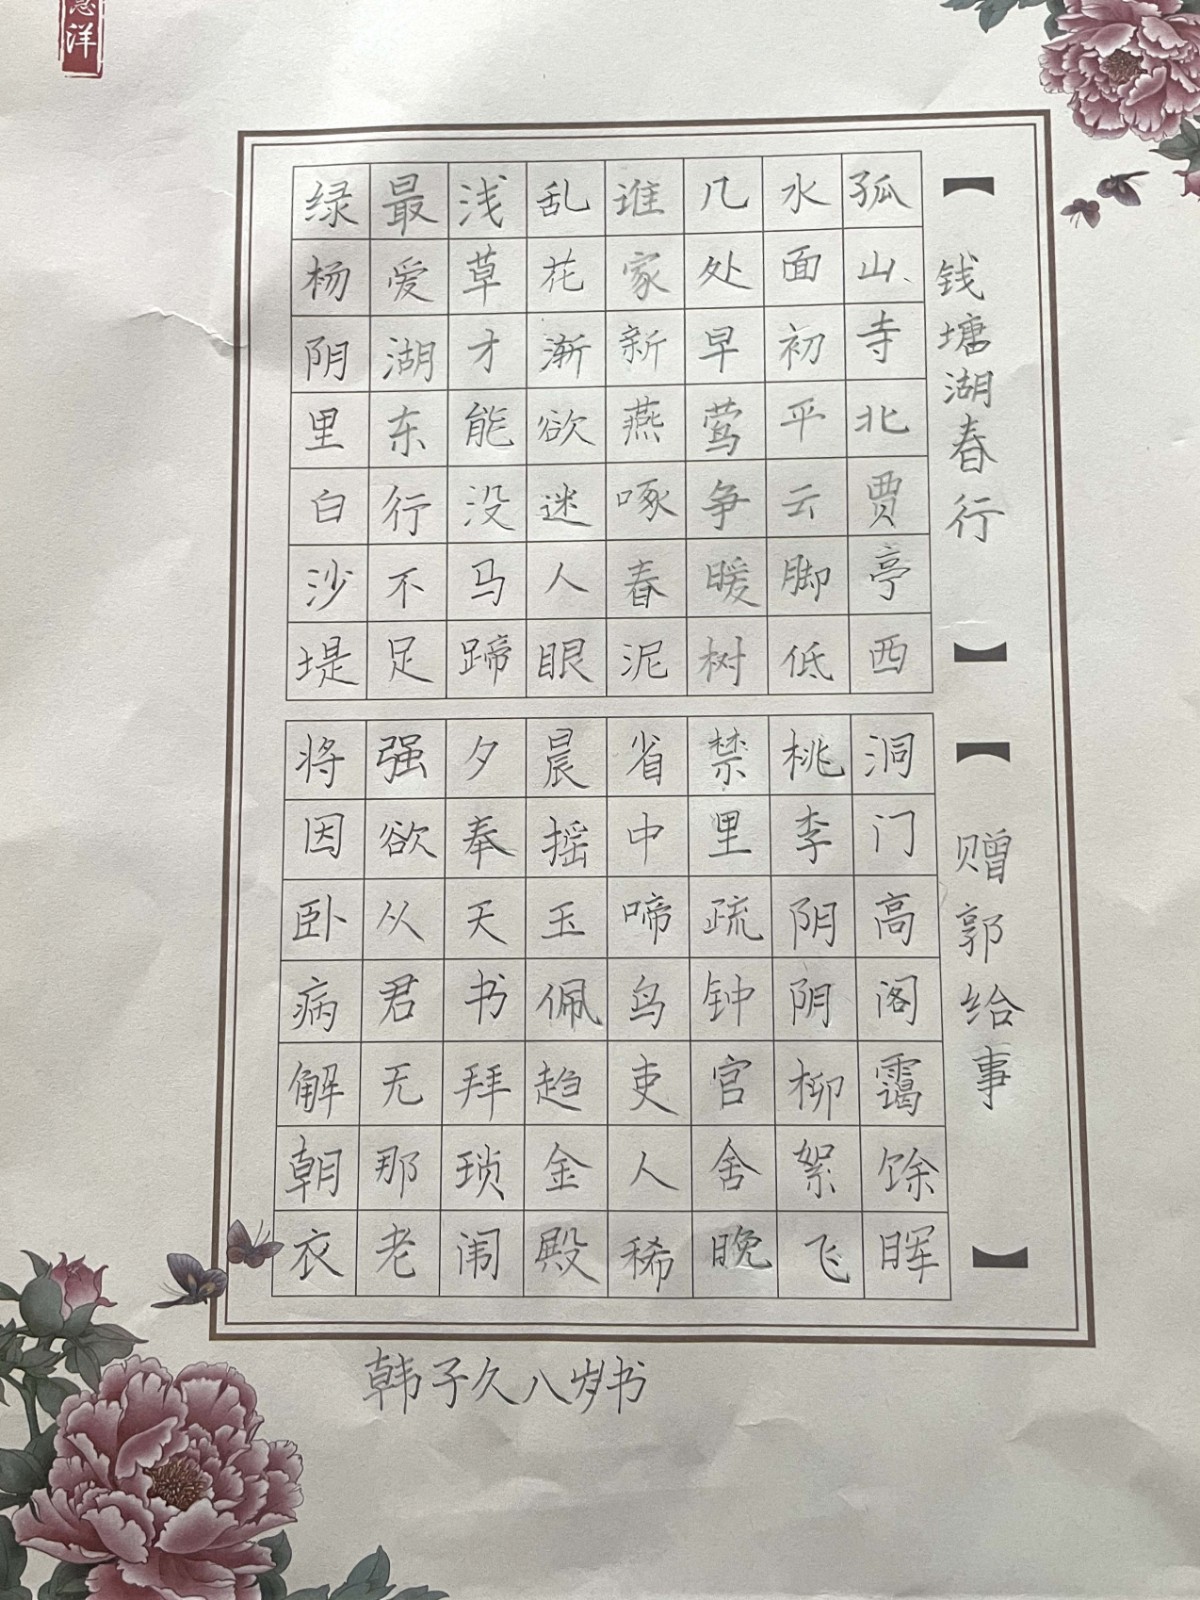 【钱塘湖春行】
孤山寺北贾亭西
水面初平云脚低
几处早莺争暖树
谁家新燕啄春泥
乱花渐欲迷人眼
浅草才能没马蹄
最爱湖东行不足
绿杨阴里白沙堤
【赠郭给事】
洞门高阁霭馀晖
桃李阴阴柳絮飞
禁里疏钟官舍晚
省中啼鸟吏人稀
晨摇玉佩趋金殿
夕奉天书拜琐闱
强欲从君无那老
将因卧病解朝衣
韩子久八岁书
洋